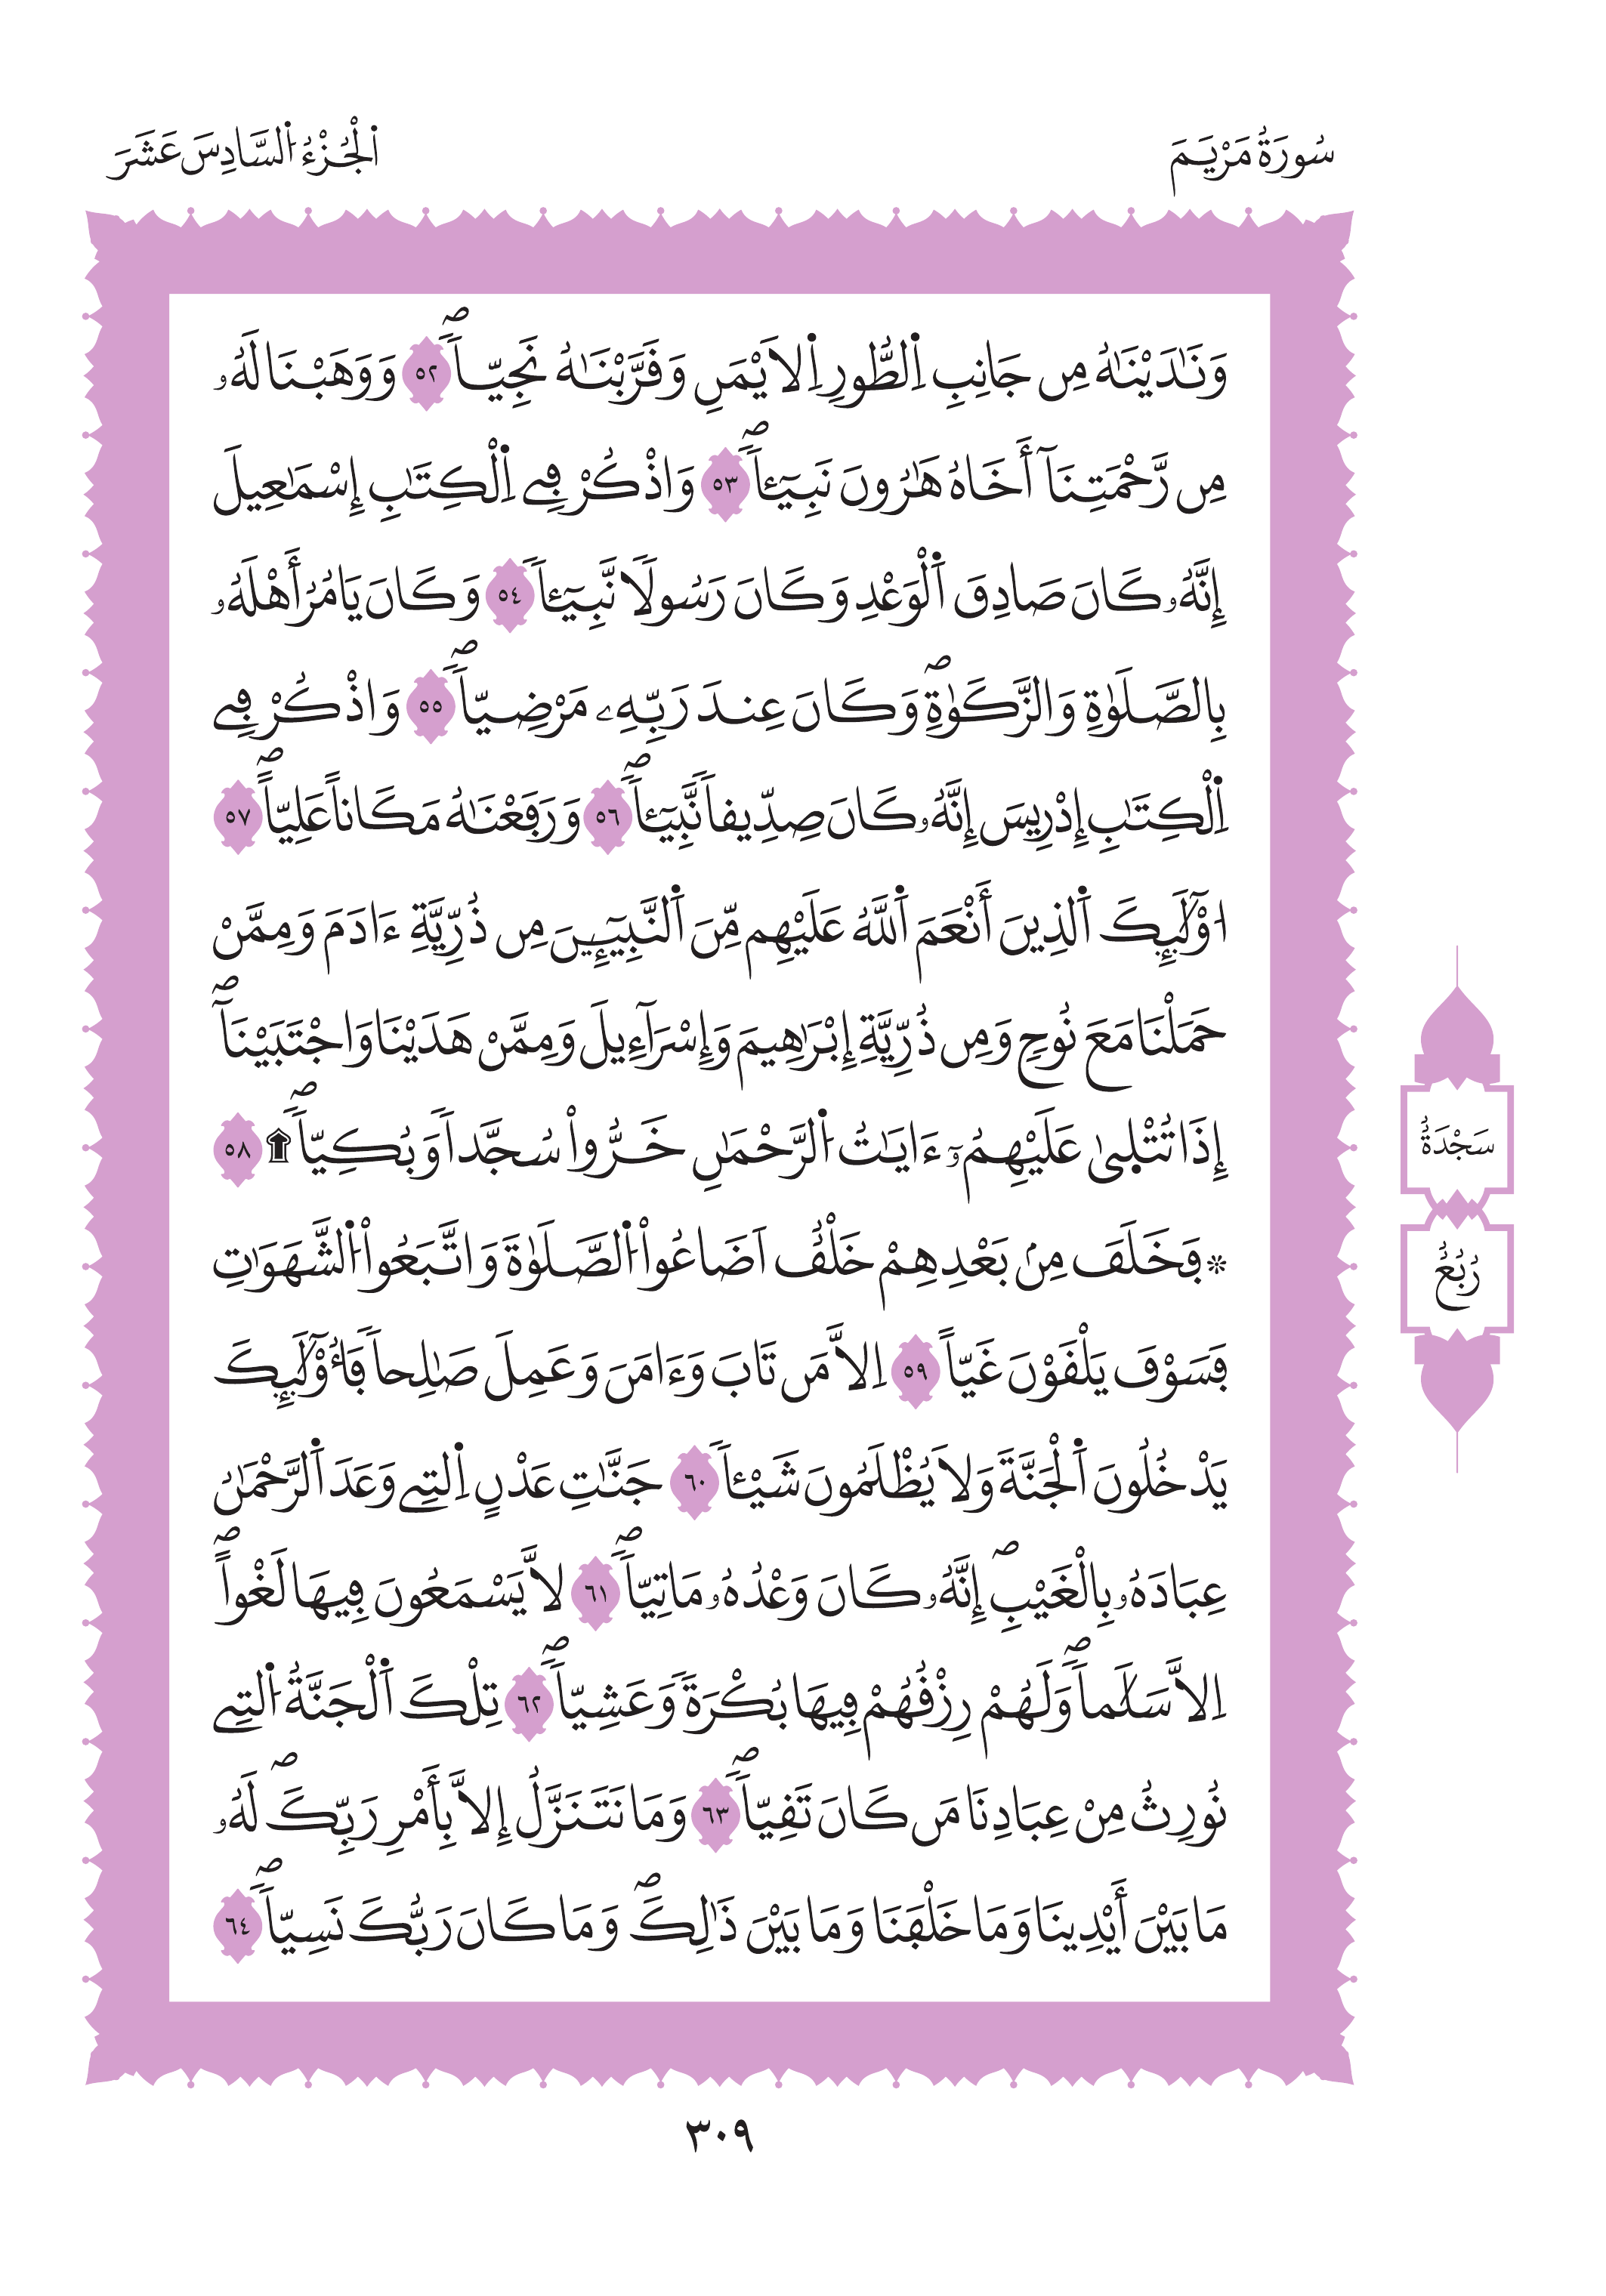 سُورَةُ مَرْيَمَ
اَ۬لْجُزْءُ اُ۬لسَّادِسَ عَشَرَ
وَنَٰدَيْنَٰهُ مِن جَانِبِ اِ۬لطُّورِ اِ۬لَايْمَنِ وَقَرَّبْنَٰهُ نَجِيّاٗۖ ٥٢ وَوَهَبْنَا لَهُۥ
مِن رَّحْمَتِنَآ أَخَاهُ هَٰرُونَ نَبِيٓـٔاٗۖ ٥٣ وَاذْكُرْ فِے اِ۬لْكِتَٰبِ إِسْمَٰعِيلَ
إِنَّهُۥ كَانَ صَادِقَ اَ۬لْوَعْدِ وَكَانَ رَسُولاٗ نَّبِيٓـٔاٗ ٥٤ وَكَانَ يَامُرُ أَهْلَهُۥ
بِالصَّلَوٰةِ وَالزَّكَوٰةِۖ وَكَانَ عِندَ رَبِّهِۦ مَرْضِيّاٗۖ ٥٥ وَاذْكُرْ فِے
اِ۬لْكِتَٰبِ إِدْرِيسَ إِنَّهُۥ كَانَ صِدِّيقاٗ نَّبِيٓـٔاٗۖ ٥٦ وَرَفَعْنَٰهُ مَكَاناً عَلِيّاًۖ ٥٧
ا۟وْلَٰٓئِكَ اَ۬لذِينَ أَنْعَمَ اَ۬للَّهُ عَلَيْهِم مِّنَ اَ۬لنَّبِيٓـِٕينَ مِن ذُرِّيَّةِ ءَادَمَ وَمِمَّنْ
حَمَلْنَا مَعَ نُوحٖ وَمِن ذُرِّيَّةِ إِبْرَٰهِيمَ وَإِسْرَآءِيلَ وَمِمَّنْ هَدَيْنَا وَاجْتَبَيْنَآۖ
إِذَا تُتْل۪يٰ عَلَيْهِمُۥٓ ءَايَٰتُ اُ۬لرَّحْمَٰنِ خَرُّواْ سُجَّداٗ وَبُكِيّاٗۖ ۩ ٥٨
۞ فَخَلَفَ مِنۢ بَعْدِهِمْ خَلْفٌ اَضَاعُواْ اُ۬لصَّلَوٰةَ وَاتَّبَعُواْ اُ۬لشَّهَوَٰتِ
فَسَوْفَ يَلْقَوْنَ غَيّاً ٥٩ اِلَّا مَن تَابَ وَءَامَنَ وَعَمِلَ صَٰلِحاٗ فَأُوْلَٰٓئِكَ
يَدْخُلُونَ اَ۬لْجَنَّةَ وَلَا يُظْلَمُونَ شَيْـٔاٗ ٦٠ جَنَّٰتِ عَدْنٍ اِ۬لتِے وَعَدَ اَ۬لرَّحْمَٰنُ
عِبَادَهُۥ بِالْغَيْبِۖ إِنَّهُۥ كَانَ وَعْدُهُۥ مَاتِيّاٗۖ ٦١ لَّا يَسْمَعُونَ فِيهَا لَغْواًۖ
اِلَّا سَلَٰماٗۖ وَلَهُمْ رِزْقُهُمْ فِيهَا بُكْرَةٗ وَعَشِيّاٗۖ ٦٢ تِلْكَ اَ۬لْجَنَّةُ اُ۬لتِے
نُورِثُ مِنْ عِبَادِنَا مَن كَانَ تَقِيّاٗۖ ٦٣ وَمَا نَتَنَزَّلُ إِلَّا بِأَمْرِ رَبِّكَۖ لَهُۥ
مَا بَيْنَ أَيْدِينَا وَمَا خَلْفَنَا وَمَا بَيْنَ ذَٰلِكَۖ وَمَا كَانَ رَبُّكَ نَسِيّاٗۖ ٦٤
سَجْدَةٌ
رُبُعٌ
٣٠٩